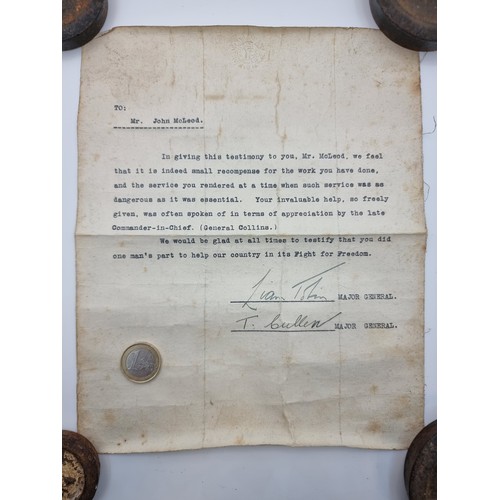 TO:
Mr. John McLeod.
In giving this testimony to you, Mr. McLeod, we feel
that it is indeed small recompense for the work you have done,
and the service you rendered at a time when such service was so
dangerous as it was essential. Your invaluable help, so freely
given, was often spoken of in terms of appreciation by the late
Commander-in-Chief. (General Collins.)
We would be glad at all times to testify that you did
one man's part to help our country in its Fight for Freedom.
Liam Tobin MAJOR GENERAL.
T. Cullen MAJOR GENERAL.